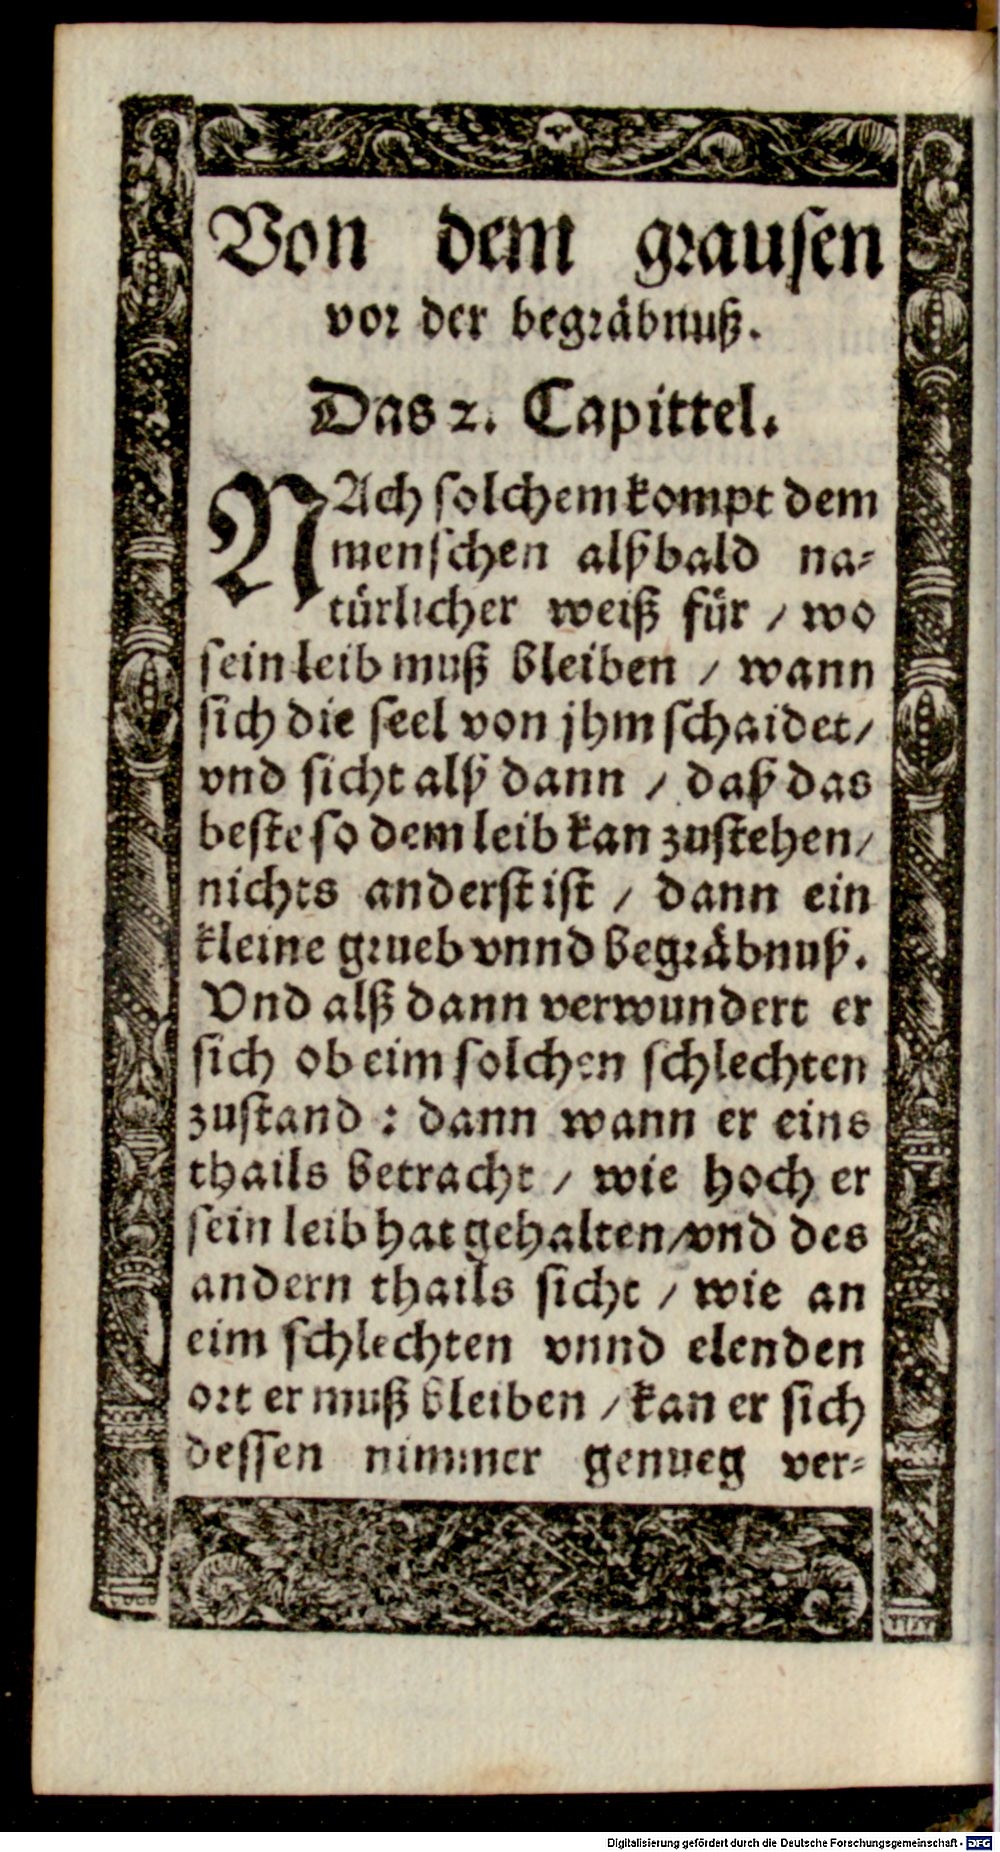 Von dem grausen
vor der begräbnuß.
Das 2. Capittel.
NAch solchem kompt dem
menschen alßbald na-
türlicher weiß für / wo
sein leib muß bleiben / wann
sich die seel von jhm schaidet /
vnd sicht alß dann / daß das
beste so dem leib kan zustehen /
nichts anderst ist / dann ein
kleine grueb vnnd begräbnuß.
Vnd alß dann verwundert er
sich ob eim solchen schlechten
zustand : dann wann er eins
thails betracht / wie hoch er
sein leib hat gehalten / vnd des
andern thails sicht / wie an
eim schlechten vnnd elenden
ort er muß bleiben / kan er sich
dessen nimmer genueg ver-
Digitalisierung gefördert durch die Deutsche Forschungsgemeinschaft - DFG